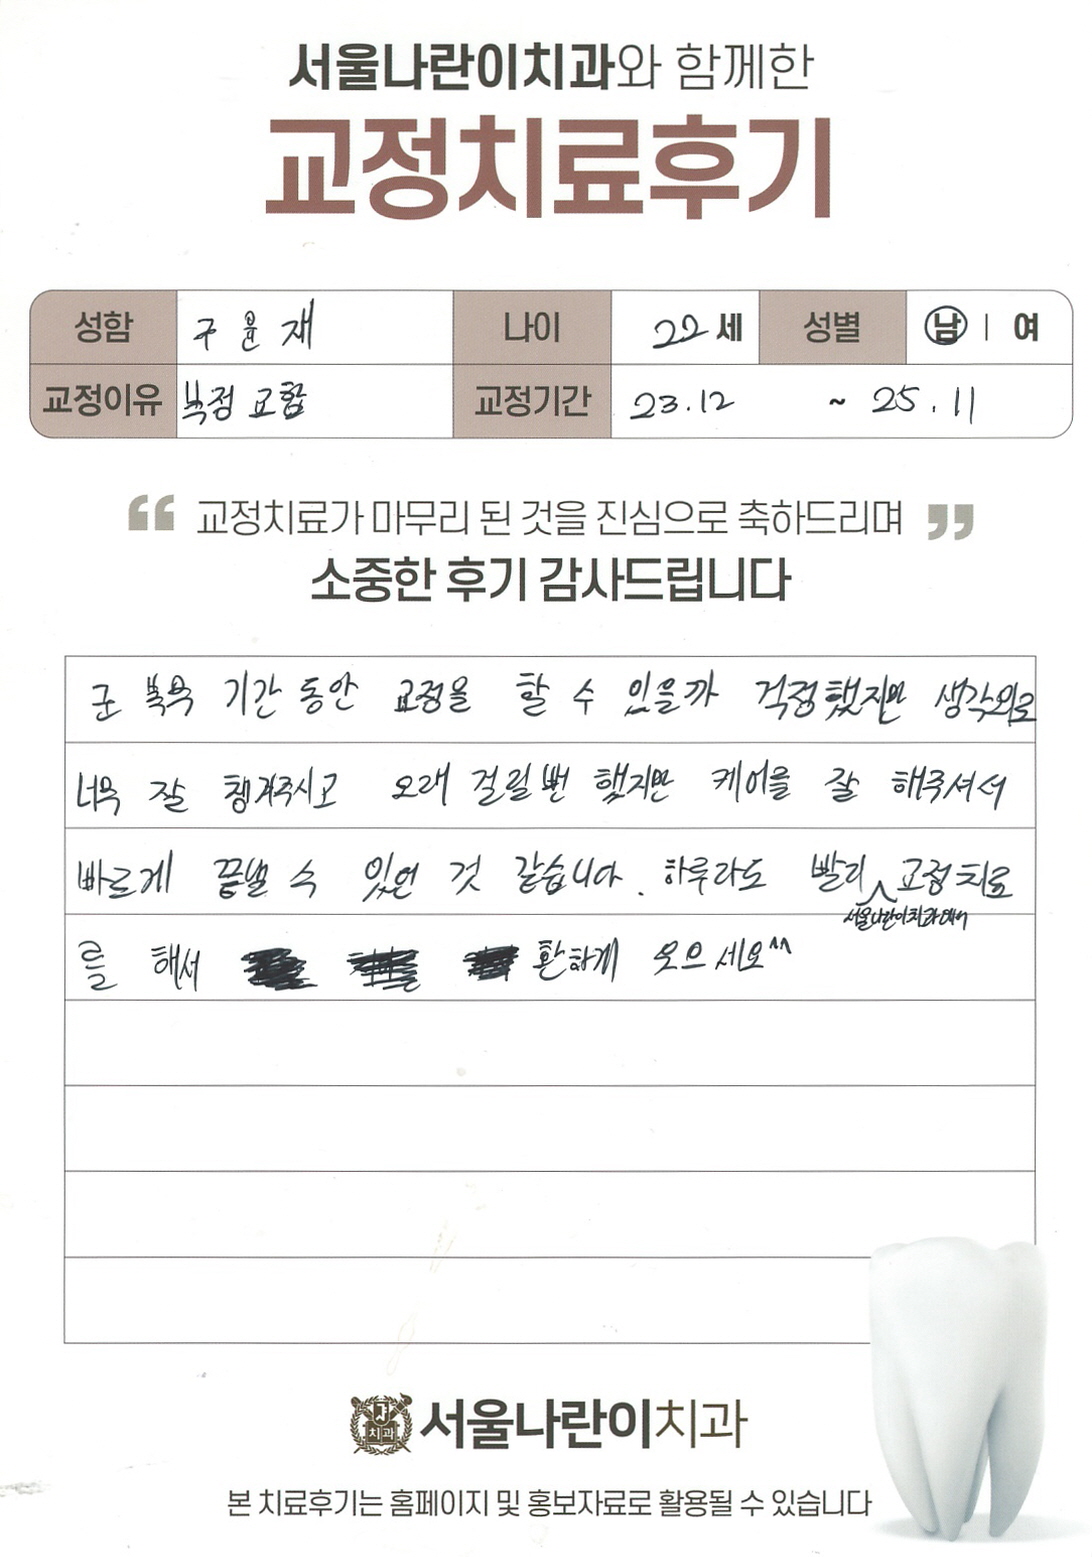 서울나란이치과와 함께한
교정치료후기
성함 구윤재 나이 22세 성별 남 | 여
교정이유 부정교합 교정기간 23.12 ~ 25.11
“ 교정치료가 마무리 된 것을 진심으로 축하드리며 ”
소중한 후기 감사드립니다
군 복무 기간 동안 교정을 할 수 있을까 걱정했지만 생각외로
너무 잘 챙겨주시고 오래 걸릴뻔 했지만 케어를 잘 해주셔서
빠르게 끝낼 수 있던 것 같습니다. 하루라도 빨리 교정치료
서울나란이치과에서
를 해서 환하게 웃으세요^^
치과
서울나란이치과
본 치료후기는 홈페이지 및 홍보자료로 활용될 수 있습니다